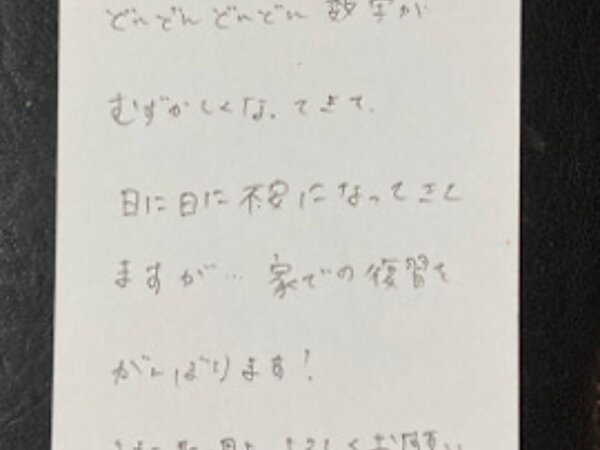 どんどんどんどん 数字が
むずかしくなってきて、
日に日に不安になってきて
ますが… 家での復習を
がんばります!
よろしくお願い